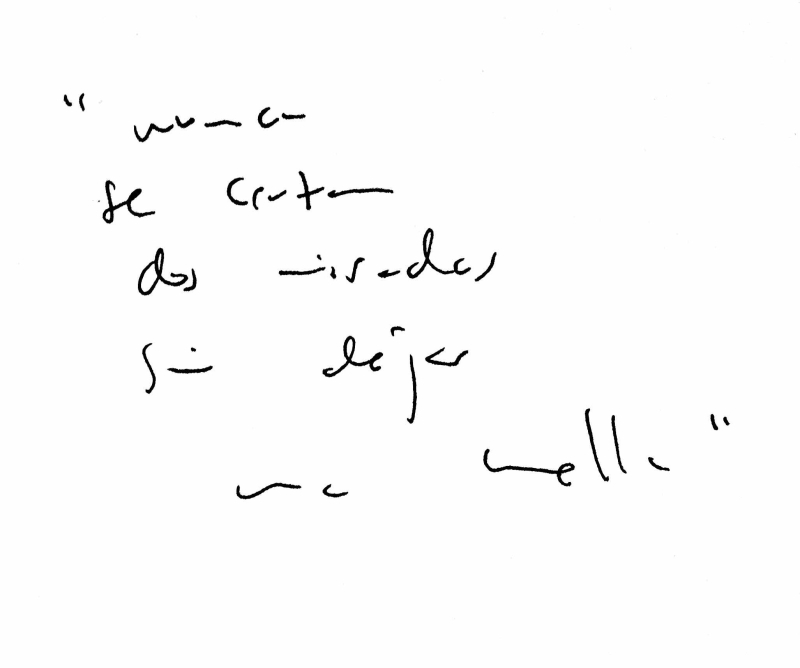 "nunca
se cruzan
dos miradas
sin dejar
una mella"